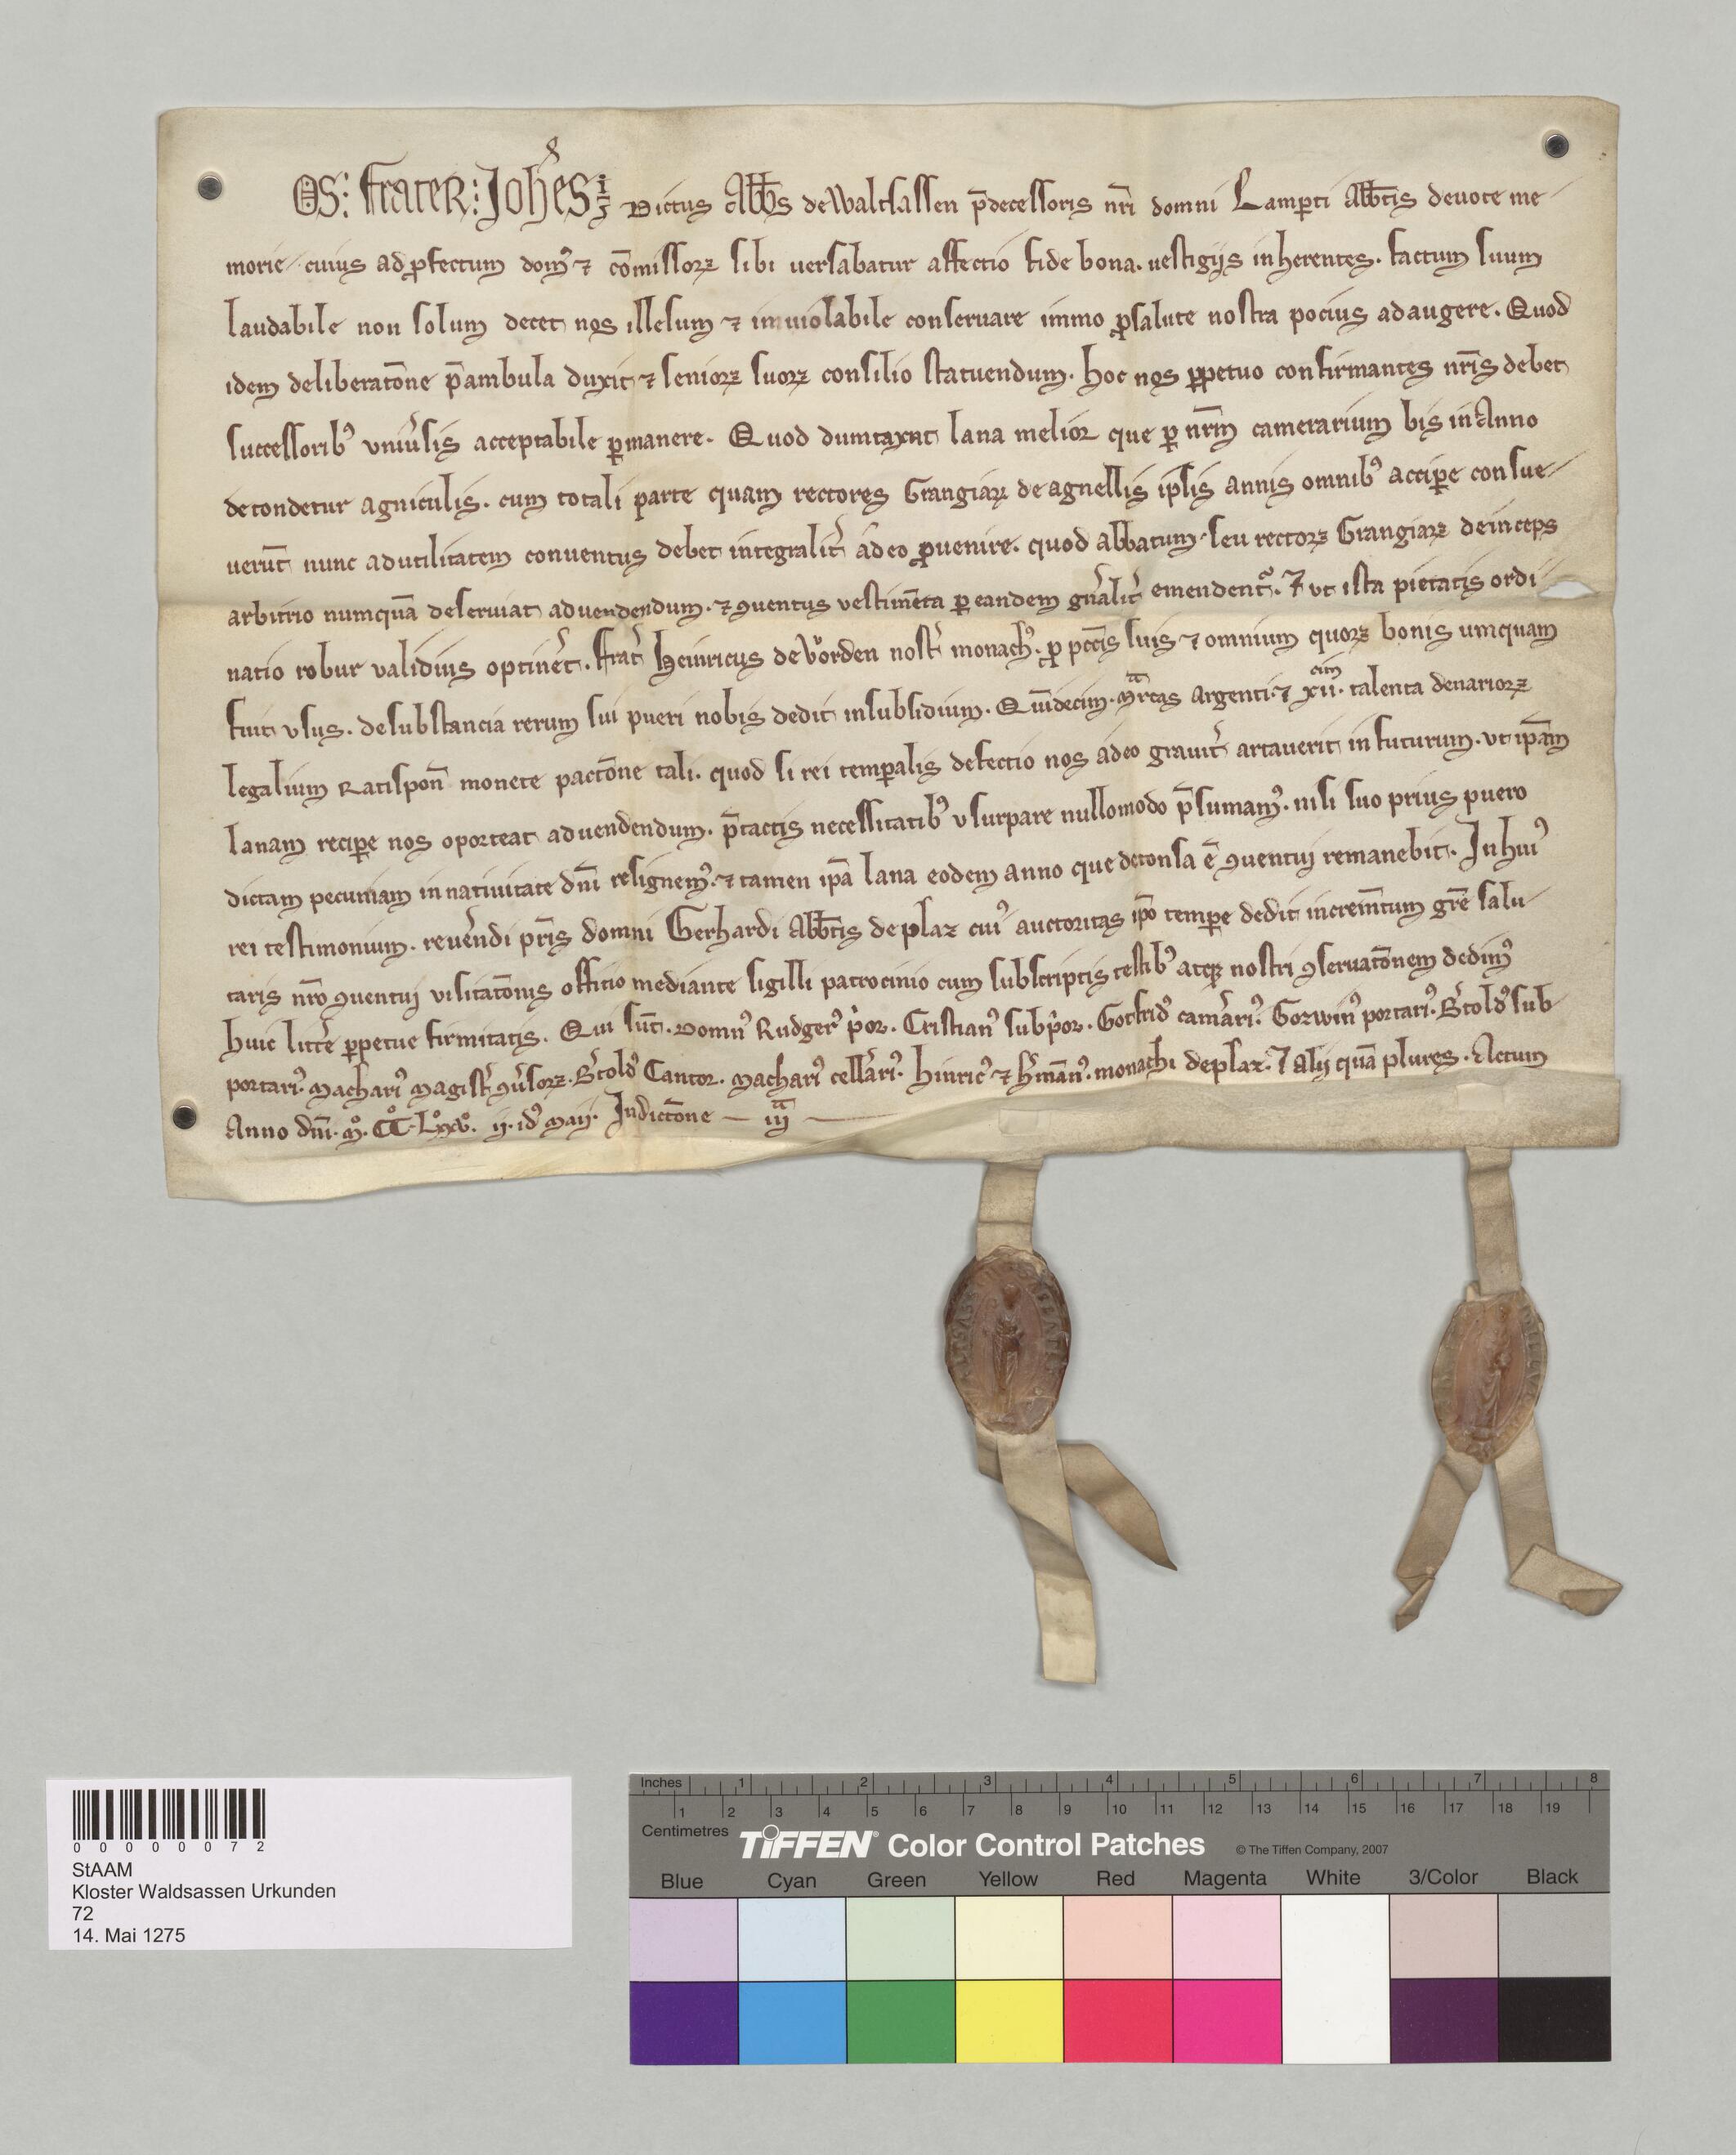 OS: Frater: Joh̄es dictus Abb̄s de Waltsassen p̄decessoris nr̄i domni Lamꝑti Abb̄tis deuote me-
morie cuius ad ꝓfectum domꝰ ⁊ cōmissoꝝ sibi uersabatur affectio fide bona. uestigijs inherentes. factum suum
laudabile non solum decet nos illesum ⁊ inuiolabile conseruare immo ꝓ salute nostra pocius adaugere. Quod
idem deliberatōne p̄ambula duxit ⁊ senioꝝ suoꝝ consilio statuendum. hoc nos ꝑpetuo confirmantes nr̄is debet
successoribꝰ vniu̾sis acceptabile ꝑmanere. Quod dumtaxat lana melior que ꝑ nr̄m camerarium bis in Anno
detondetur agniculis. cum totali parte quam rectores Grangiaꝝ de agnellis ip̄sis annis omnibꝰ acciꝑe consue-
uerūt nunc ad utilitatem conuentus debet integralit̾ adeo ꝓuenire. quod abbatum seu rectoꝝ Grangiaꝝ deinceps
arbitrio numquā deseruiat ad uendendum. ⁊ ꝯuentus vestimēta ꝑ eandem gn̄alit̾ emendent᷑. ⁊ vt ista pietatis ordi-
natio robur validius optinēt. Frat̾ Heinricus de vͦrden nost̾ monachꝰ. ꝓ pcc̄is suis ⁊ omnium quoꝝ bonis umquam
fuit vsus. de substancia rerum sui pueri nobis dedit in subsidium. Quīdecim. Mr̄cas argenti. ⁊ xii.cim talenta denarioꝝ
legalium Ratispon̄ monete pactōne tali. quod si rei temꝑalis defectio nos adeo grauit̾ artauerit in futurum. vt ip̄am
lanam reciꝑe nos oporteat ad uendendum. p̄tactis necessitatibꝰ vsurpare nullomodo p̄sumamꝰ. nisi suo prius puero
dictam pecuniam in natiuitate dn̄i resignemꝰ. ⁊ tamen ip̄a lana eodem anno que detonsa ē ꝯuentuj remanebit. In huiꝰ
rei testimonium. reuēndi pr̄is domni Gerhardi Abb̄tis de plaz cuiꝰ auctoritas ip̄o temꝑe dedit increm̄tum gr̄e salu-
taris nr̄o ꝯuentuj visitatōnis officio mediante sigilli patrocinio cum subscriptis testibꝰ atqꝫ nostri ꝯseruatōnem dedimꝰ
huic litt̾e ꝑpetue firmitatis. Qui sūt. Domnꝰ Rudgerꝰ p̾or. Cristianꝰ subp̾or. Gotfridꝰ cam̾ariꝰ. Gozwinꝰ portariꝰ. B̾toldꝰ sub-
portariꝰ. Machariꝰ magist̾ ꝯu̾soꝝ. B̾toldꝰ Cantor. Machariꝰ cell̾ariꝰ. hinricꝰ ⁊ h̾mānꝰ. monachi de plaz. ⁊ alij quā plures. Actum
Anno dn̄i. Mͦ. CCͦ. Lxxvͦ. ij. idꝰ Maij. Indictōne — iiiͣ —
0 0 0 0 0 0 7 2
StAAM
Kloster Waldsassen Urkunden
72
14. Mai 1275
Inches 1 2 3 4 5 6 7 8
1 2 3 4 5 6 7 8 9 10 11 12 13 14 15 16 17 18 19
Centimetres
TIFFEN® Color Control Patches © The Tiffen Company, 2007
Blue Cyan Green Yellow Red Magenta White 3/Color Black